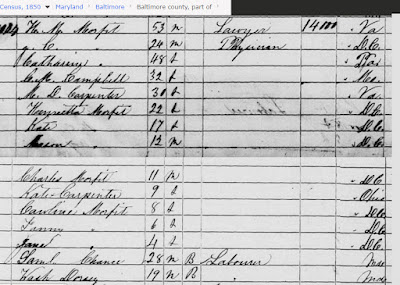 Census, 1850 Maryland Baltimore Baltimore county, part of
H. M. Morfit 53 m Lawyer 14000 Va
" C. 24 m Physician " D.C.
Catharine " 48 f
C. M. Campbell 32 f
M. D. Carpenter 30 f Va
Henrietta Morfit 22 f " D.C.
Kate " 17 f " D.C.
Mason " 13 m " D.C.
Charles Morfit 11 m " D.C.
Kate Carpenter 9 f Ohio
Caroline Morfit 8 f " D.C.
Fanny " 6 f " D.C.
" 4 f " D.C.
Saml Chance 28 m B Labourer
Wash Dorsey 19 m B "